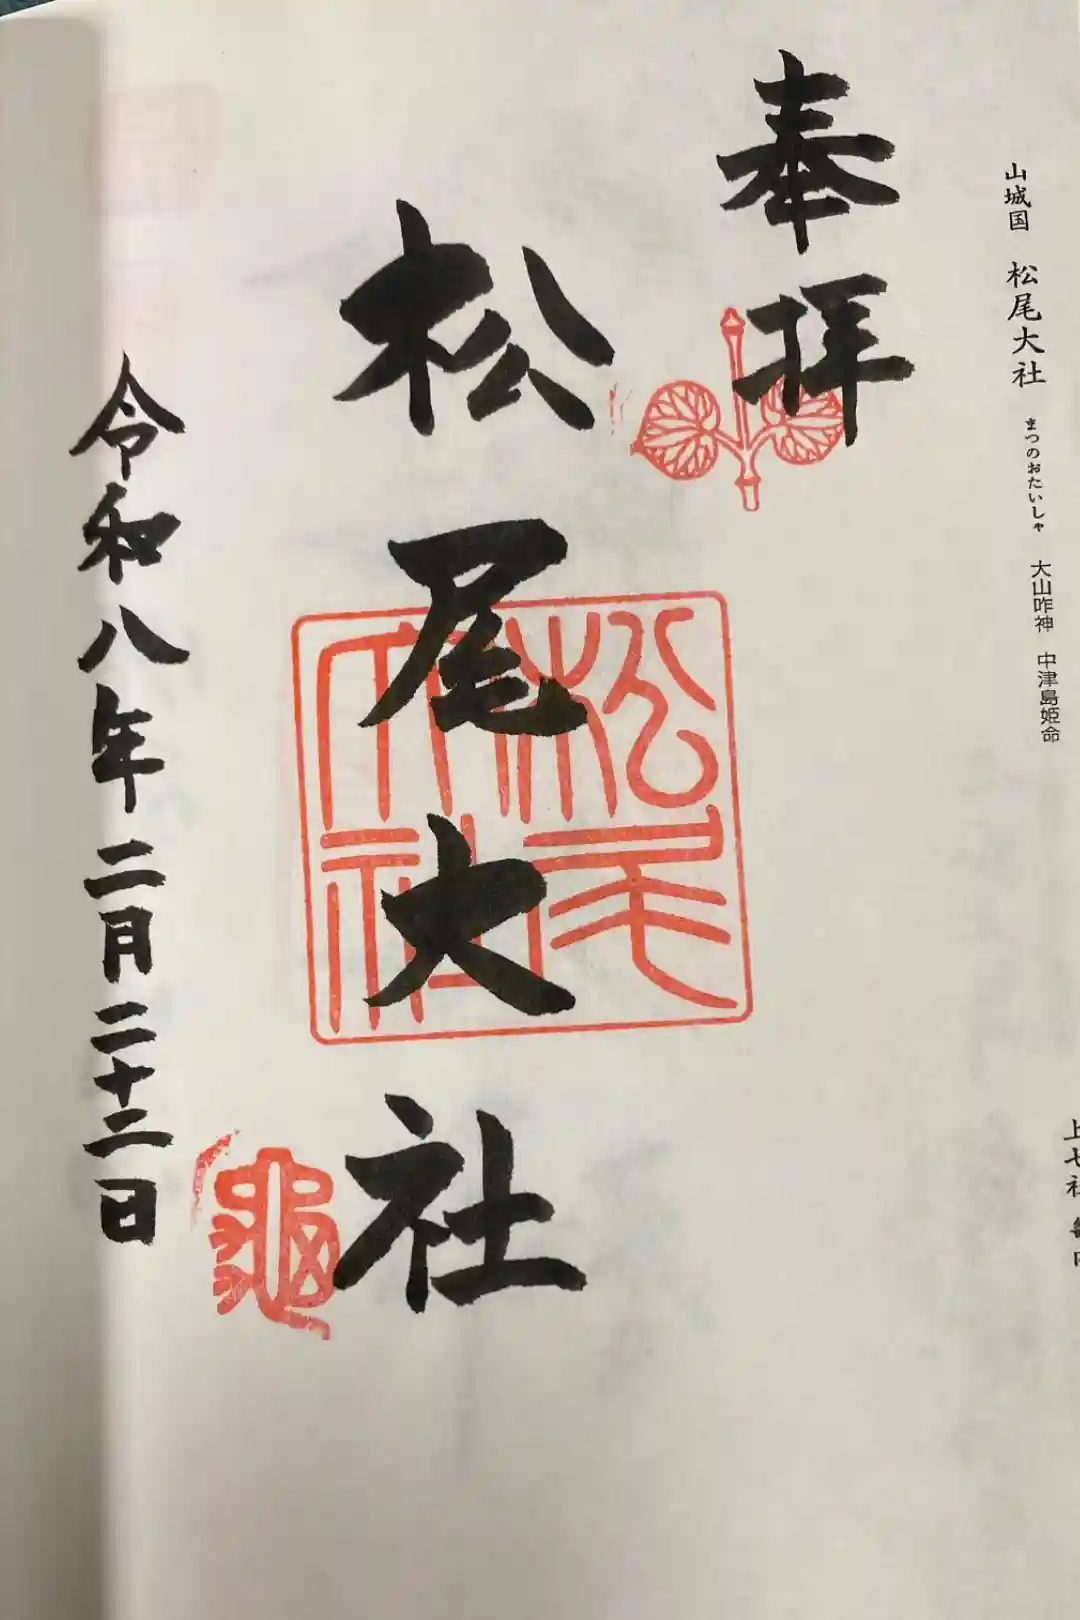 山城国 松尾大社 まつのおたいしゃ 大山咋神 中津島姫命
上七社
奉拝
松尾大社
松尾大社
龜
令和八年二月二十二日